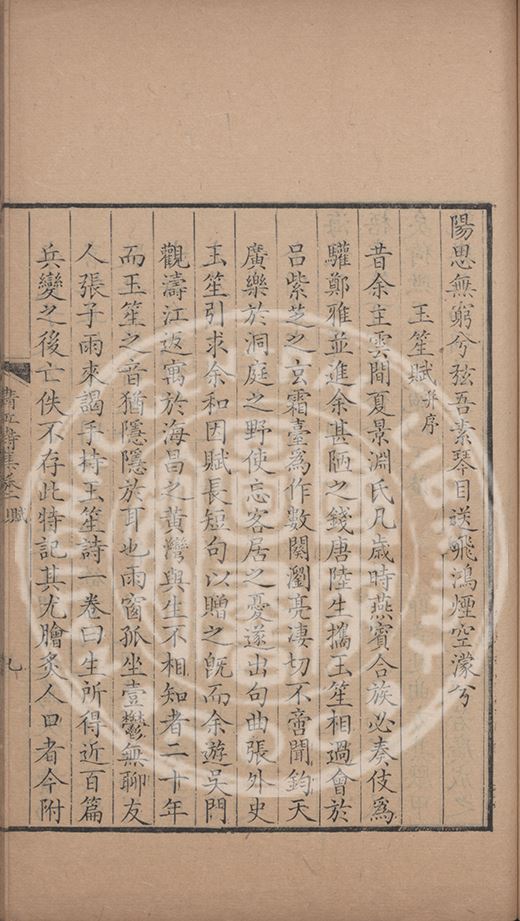 陽思無窮兮弦吾素琴目送飛鴻煙空濛兮
玉笙賦并序
昔余主雲間夏景淵氏凡歲時燕賓合族必奏伎為
驩鄭雅並進余甚陋之錢唐陸生攜玉笙相過會於
呂紫芝之玄霜臺為作數闋瀏亮淒切不啻聞鈞天
廣樂於洞庭之野使忘客居之憂遂出句曲張外史
玉笙引求余和因賦長短句以贈之既而余遊吳門
觀濤江返寓於海昌之黃灣與生不相知者二十年
而玉笙之音猶隱隱於耳也雨窗孤坐壹鬱無聊友
人張子雨來謁手持玉笙詩一卷曰生所得近百篇
兵變之後亡佚不存此特記其尤膾炙人口者今附
清江詩集卷一賦
九